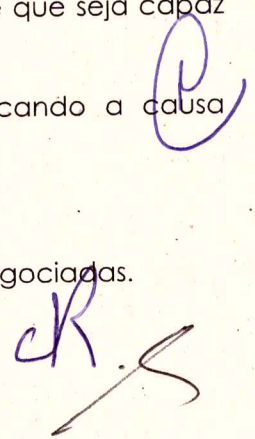 que seja capaz
cando a causa
gociadas.